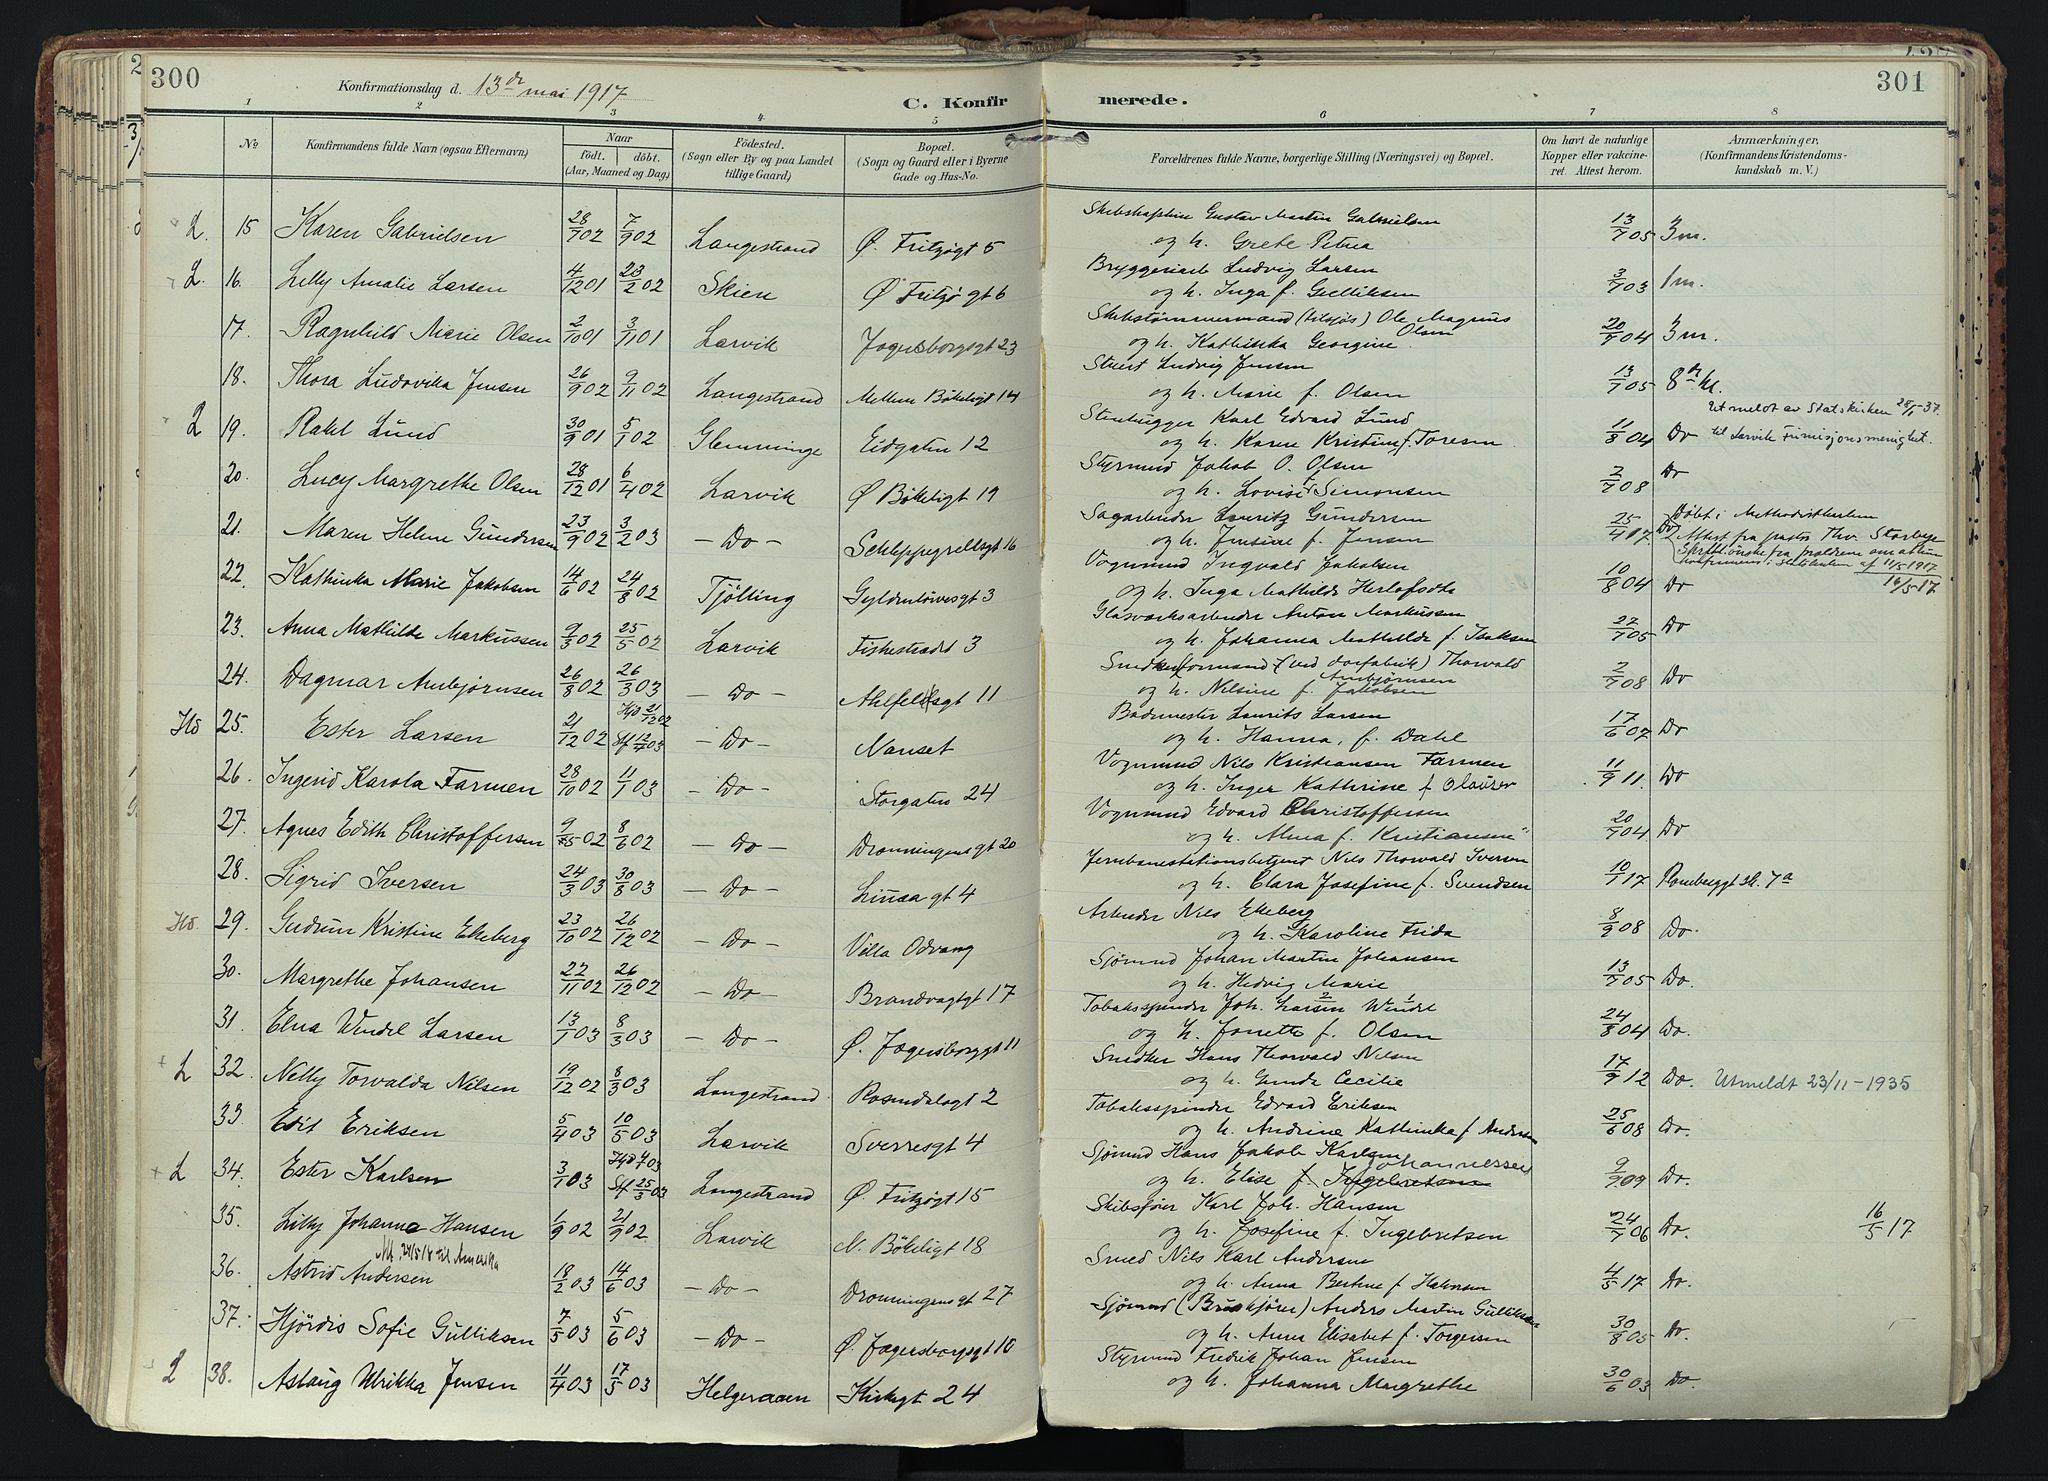 300
Konfirmationsdag d. 13de mai 1917
C. Konfir
merede.
301
1 2 3 4 5 6 7 8
No
Konfirmandens fulde Navn (ogsaa Efternavn)
Naar
födt. döbt.
(Aar, Maaned og Dag)
Födested.
(Sogn eller By og paa Landet
tillige Gaard)
Bopæl.
(Sogn og Gaard eller i Byerne
Gade og Hus-No.
Forældrenes fulde Navne, borgerlige Stilling (Næringsvei) og Bopæl.
Om havt de naturlige
Kopper eller vakcine-
ret. Attest herom.
Anmærkninger,
(Konfirmandens Kristendoms-
kundskab m. V.)
L. 15 Karen Gabrielsen 28/7 02 7/9 02 Langestrand Ø. Fritzøgt 5 Gustav Martin Gabrielsen 13/7 05 3 m.
og h. Grete Petrea
L. 16. Lilly Amalie Larsen 4/12 01 23/2 02 Skien Ø Fritzøgt 6 Bryggeriarb Ludvig Larsen 3/7 03 1 m.
og h. Inga f. Gulliksen
17. Ragnhild Marie Olsen 2/10 01 3/11 01 Larvik Jegersborgsgt 23 Skibstømmermand (tilsjøs) Ole Magnus Olsen 20/7 04 3 m.
og h. Kathinka Georgine
18. Thora Ludovika Jensen 26/9 02 9/11 02 Langestrand Mellem Bökeligt 14 Stuert Ludvig Jensen 13/7 05 8de kl.
og h. Marie f. Olsen
L 19. Rakel Lund 30/9 01 5/1 02 Glemminge Eidgaten 12 Stenhugger Karl Edvard Lund 11/8 04 Do Utmeldt av Statskirken 28/1-37.
og h. Karen Kristine f. Toresen til Larvik Frimisjonsmenighet.
20. Lucy Margrethe Olsen 28/12 01 6/4 02 Larvik Ø Bökeligt 19 Styrmand Jakob O. Olsen 2/7 08 Do
og h. Lovise f Simonsen
21. Maren Helene Gundersen 23/9 02 3/2 03 - Do - Schleppegrellsgt 16 Sagarbeider Lauritz Gundersen 25/4 17. Do Döbt i Methodistkirken
og h. Jensine f. Jensen Attest fra pastor Thv. Storbye
11/5 1917
16/5-17
22. Kathinka Marie Jakobsen 14/6 02 24/8 02 Tjölling Gyldenløvesgt 3 Vognmand Ingvald Jakobsen 10/8 04 Do
og h. Inga Mathilde Herlofsdtr
23. Anna Mathilde Markussen 9/3 02 25/5 02 Larvik Fiskestrædt 3 Glasværksarbeider Anton Markussen 27/7 05 Do
og h. Johanna Mathilde f. Isaksen
24. Dagmar Arnbjørnsen 26/8 02 26/3 03 - Do - Ahlfeldtsgt 11 Thorvald Arnbjørnsen 2/7 08 Do
og h Nilsine f. Jakobsen
Ho 25. Ester Larsen 21/12 02 Hjd 21/12 02 Stf 12/4 03 - Do - Nanset Bademester Laurits Larsen 17/6 07 Do
og h. Hanna, f. Dahl
26. Ingerid Karola Farmen 28/10 02 11/1 03 - Do - Storgaten 24 Vognmand Nils Kristiansen Farmen 11/9 11. Do
og h. Inger Kathrine f Olausen
27. Agnes Edith Christoffersen 9/5 02 8/6 02 - Do - Dronningensgt 20 Vognmand Edvard Christoffersen 20/7 04 Do
og h. Alma f. Kristiansen
28. Sigrid Iversen 24/3 03 30/8 03 - Do - Linaagt 4 Jernbanestationsbetjent Nils Thorvald Iversen 10/1 17 7a
og h. Clara Josefine f. Svendsen
Ho. 29. Gudrun Kristine Ekeberg 23/10 02 26/12 02 - Do - Villa Odvang Arbeider Nils Ekeberg 8/9 08 Do.
og h. Karoline Frida
30. Margrethe Johansen 22/11 02 26/12 02 - Do - Brandvagtgt 17 Sjømand Johan Martin Johansen 13/7 05 Do.
og h. Hedvig Marie
31. Elna Wendel Larsen 13/1 03 8/3 03 - Do - Ø. Jegersborggt 11 Tobaksspinder Joh. Larsen Wendel 24/8 04 Do.
og h. Jonette f. Olsen
+ L 32. Nelly Torvalda Nilsen 19/12 02 8/3 03 Langestrand. Rosendalsgt 2 Snedker Hans Thorvald Nilsen 17/9 12 Do. Utmeldt 23/11-1935
og h. Gunda Cecilie
33. Edit Eriksen 5/4 03 10/5 03 Larvik Sverresgt 4 Tobaksspinder Edvard Eriksen 25/6 08 Do.
og h. Andrine Kathinka f Andersen
+ L 34. Ester Karlsen 3/1 03 Stf 25/3 03 Langestrand Ø. Fritzøgt 15 Sjømand Hans Jakob Karlsen 9/7 09 Do.
og h. Elise f. Ingebretsen Johannessen
35. Lilly Johanne Hansen 1/9 02 21/9 02 Larvik N. Bökeligt 18 Skibsfører Karl Joh. Hansen 24/7 06 Do. 16/5 17
og h. Josefine f. Ingebretsen
Att 24/5 18 til Amerika
36. Astrid Andersen 18/2 03 14/6 03 - Do - Dronningensgt 27 Smed Nils Karl Andersen 4/5 17 Do.
og h. Anna Bertine f Halvorsen
37. Hjördis Sofie Gulliksen 7/5 03 5/6 03 - Do - Ø. Jegersborgsgt 10 Sjømand Anders Martin Gulliksen 30/8 05 Do.
og h. Anna Elisabet f. Torgersen
L 38. Aslaug Ulrikka Jensen 11/4 03 17/5 03 Helgeraaen Kirkegt 24 Styrmand Fredrik Johan Jensen 30/6 03 Do.
og h. Johanna Margrethe